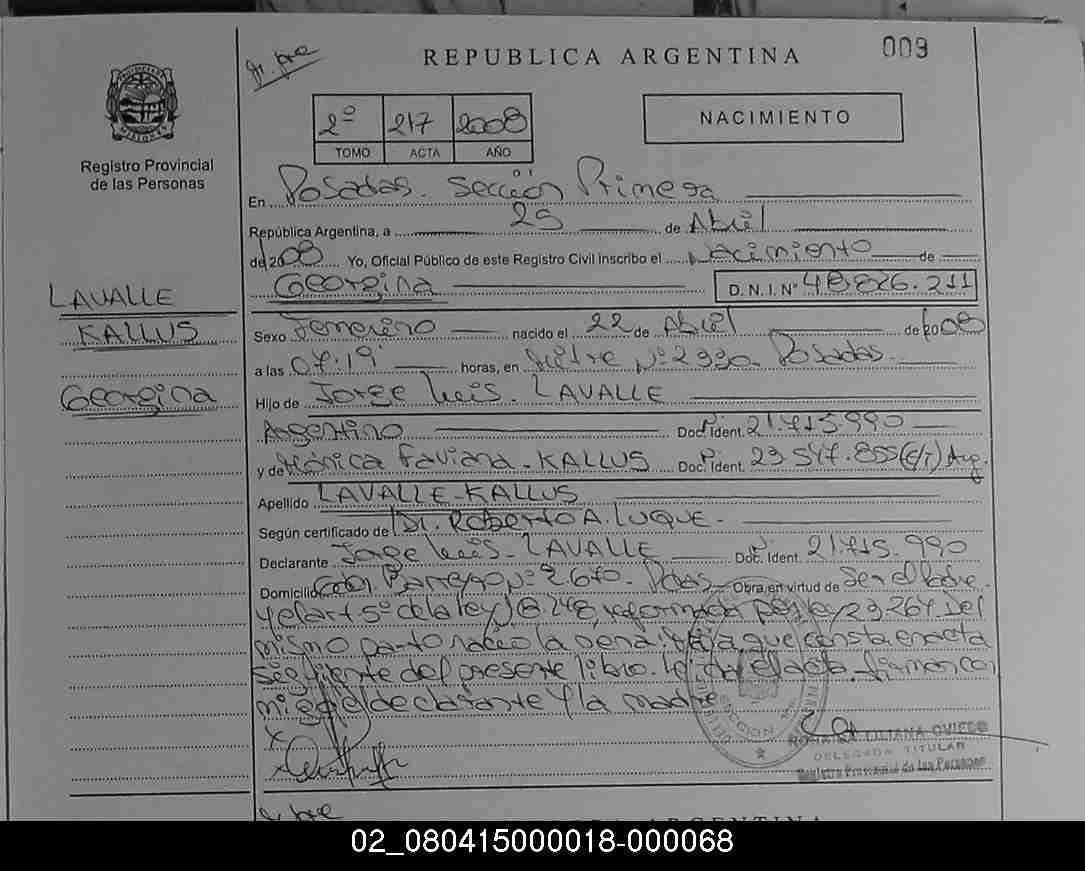 Jr. pre
REPUBLICA ARGENTINA
009
PROVINCIA DE MISIONES
Registro Provincial
de las Personas
2º 217 2008
TOMO ACTA AÑO
NACIMIENTO
En Posadas. Sección Primera
República Argentina, a 25 de Abril
de 2008 Yo, Oficial Público de este Registro Civil inscribo el Nacimiento de
Georgina D. N. I. Nº 48.826.211
LAVALLE
KALLUS
Georgina
Sexo Femenino nacido el 22 de Abril de 2008
a las 07:19 horas, en Mitre Nº 2990. Posadas.
Hijo de Jorge Luis. LAVALLE
Argentino Doc. Ident. 21.715.990
y de Mónica Faviana. KALLUS Doc. Ident. 23.547.855 (C/T) Arg.
Apellido LAVALLE-KALLUS
Según certificado de Dr. Roberto A. LUQUE.
Declarante Jorge Luis. LAVALLE Doc. Ident. 21.715.990
Domicilio Nº 2670. Pdas Obra en virtud de Ser el Padre
y el art 5º de la ley 18.248, reformada por ley 23.264 Del
mismo parto nació la que consta en acta
Siguiente del presente libro. Leída el acta. firman con
migo el declarante y la madre
x
x
SECCION
LILIANA OVIEDO
DELEGADA TITULAR
Registro Provincial de las Personas
Jr. pre
REPUBLICA ARGENTINA
02_080415000018-000068